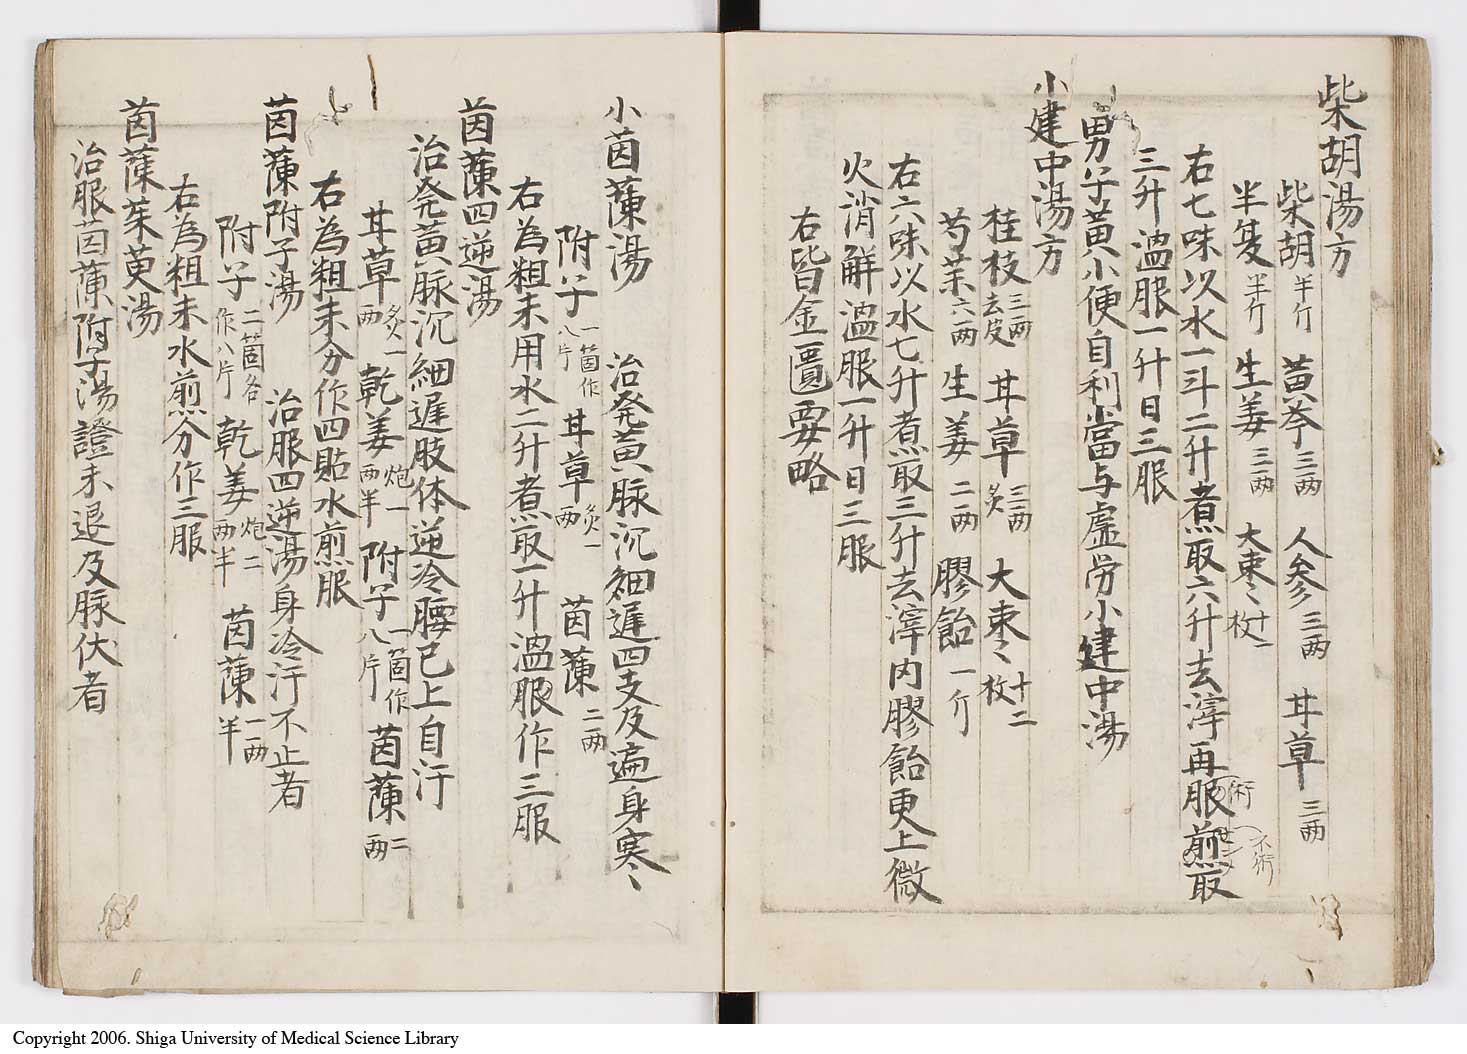 柴胡湯方
柴胡半斤 黄芩三两 人参三两 甘草三两
半夏半斤 生姜三两 大枣十二枚
右七味以水一斗二升煮取六升去滓再服煎取
三升温服一升日三服
男子黄小便自利當与虚労小建中湯
小建中湯方
桂枝三两去皮 甘草三两炙 大枣十二枚
芍薬六两 生姜二两 膠飴一斤
右六味以水七升煮取三升去滓内膠飴更上微
火消解温服一升日三服
右皆金匱要略
小茵蔯湯 治発黄脉沉細遲四支及遍身寒〻
附子一箇作八片 甘草炙一两 茵蔯二两
右為粗末用水二升煮取一升温服作三服
茵蔯四逆湯
治発黄脉沉細遲肢体逆冷腰已上自汗
甘草炙一两 乾姜炮一两半 附子一箇作八片 茵蔯二两
右為粗末分作四貼水煎服
茵蔯附子湯 治服四逆湯身冷汗不止者
附子二箇各作八片 乾姜炮二两半 茵蔯一两半
右為粗末水煎分作三服
茵蔯茱萸湯
治服茵蔯附子湯證未退及脉伏者
Copyright 2006. Shiga University of Medical Science Library